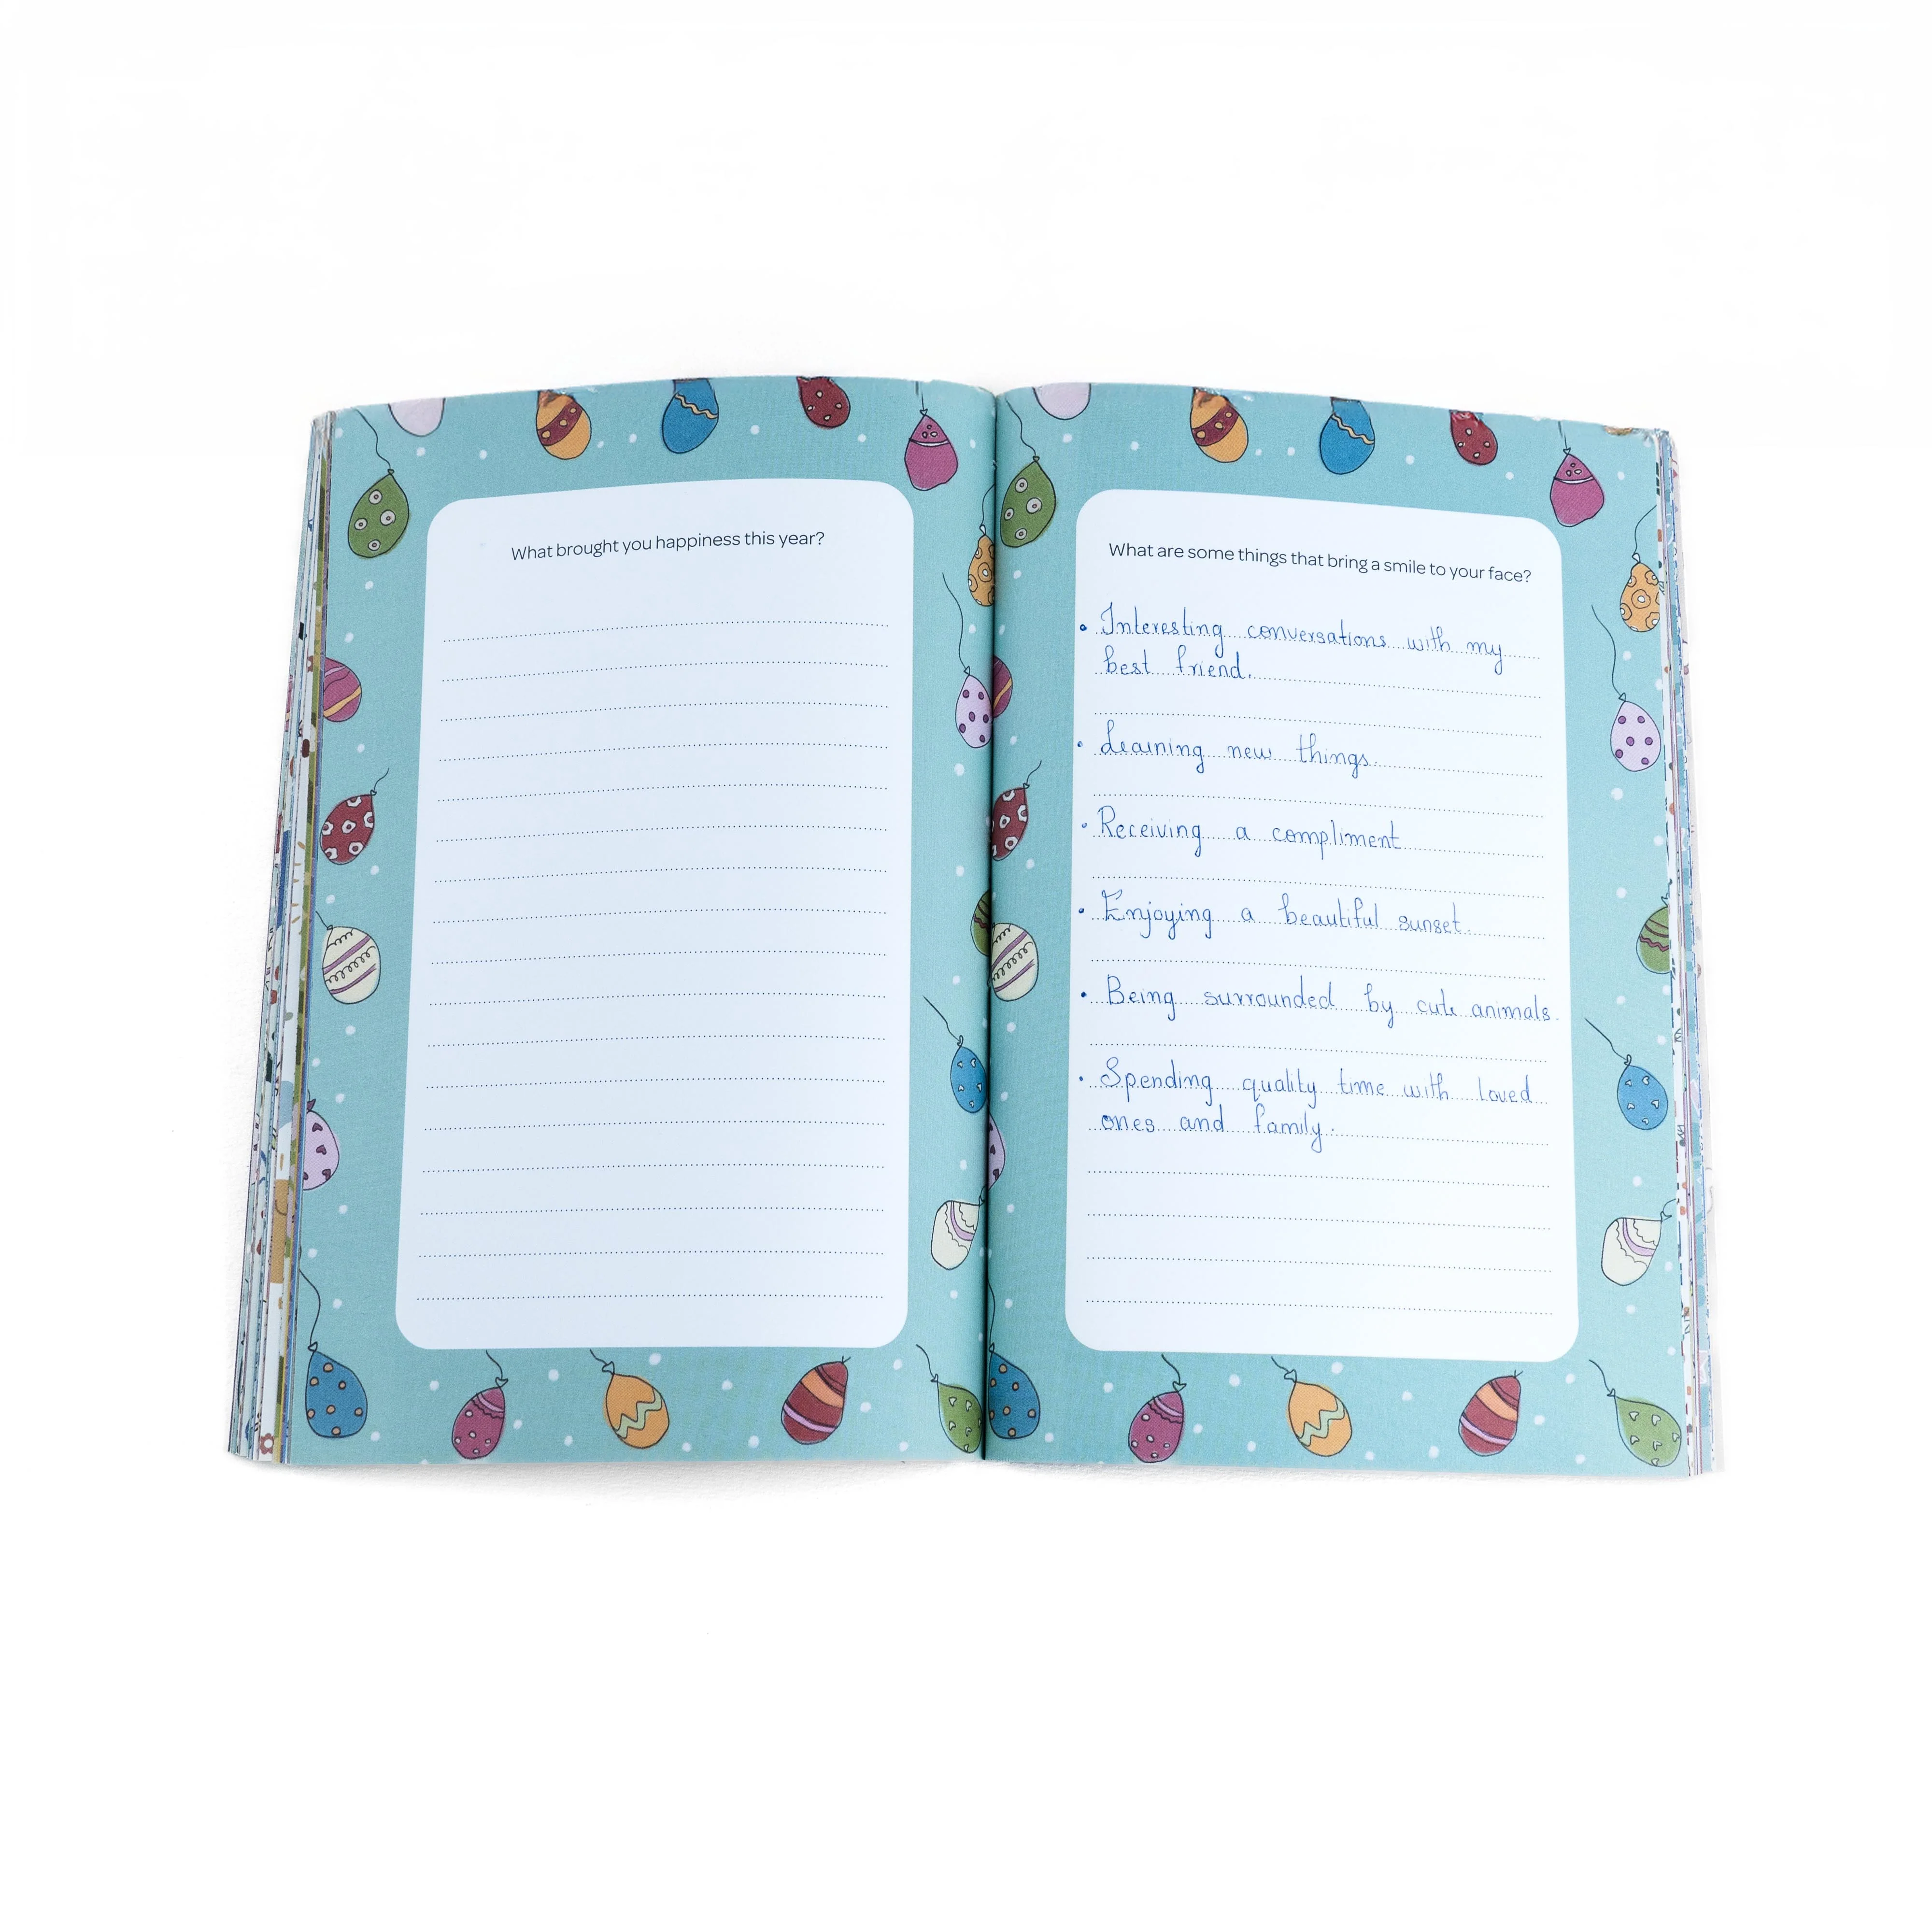 What brought you happiness this year?
What are some things that bring a smile to your face?
• Interesting conversations with my
best friend.
• Learning new things.
• Receiving a compliment
• Enjoying a beautiful sunset.
• Being surrounded by cute animals.
• Spending quality time with loved
ones and family.